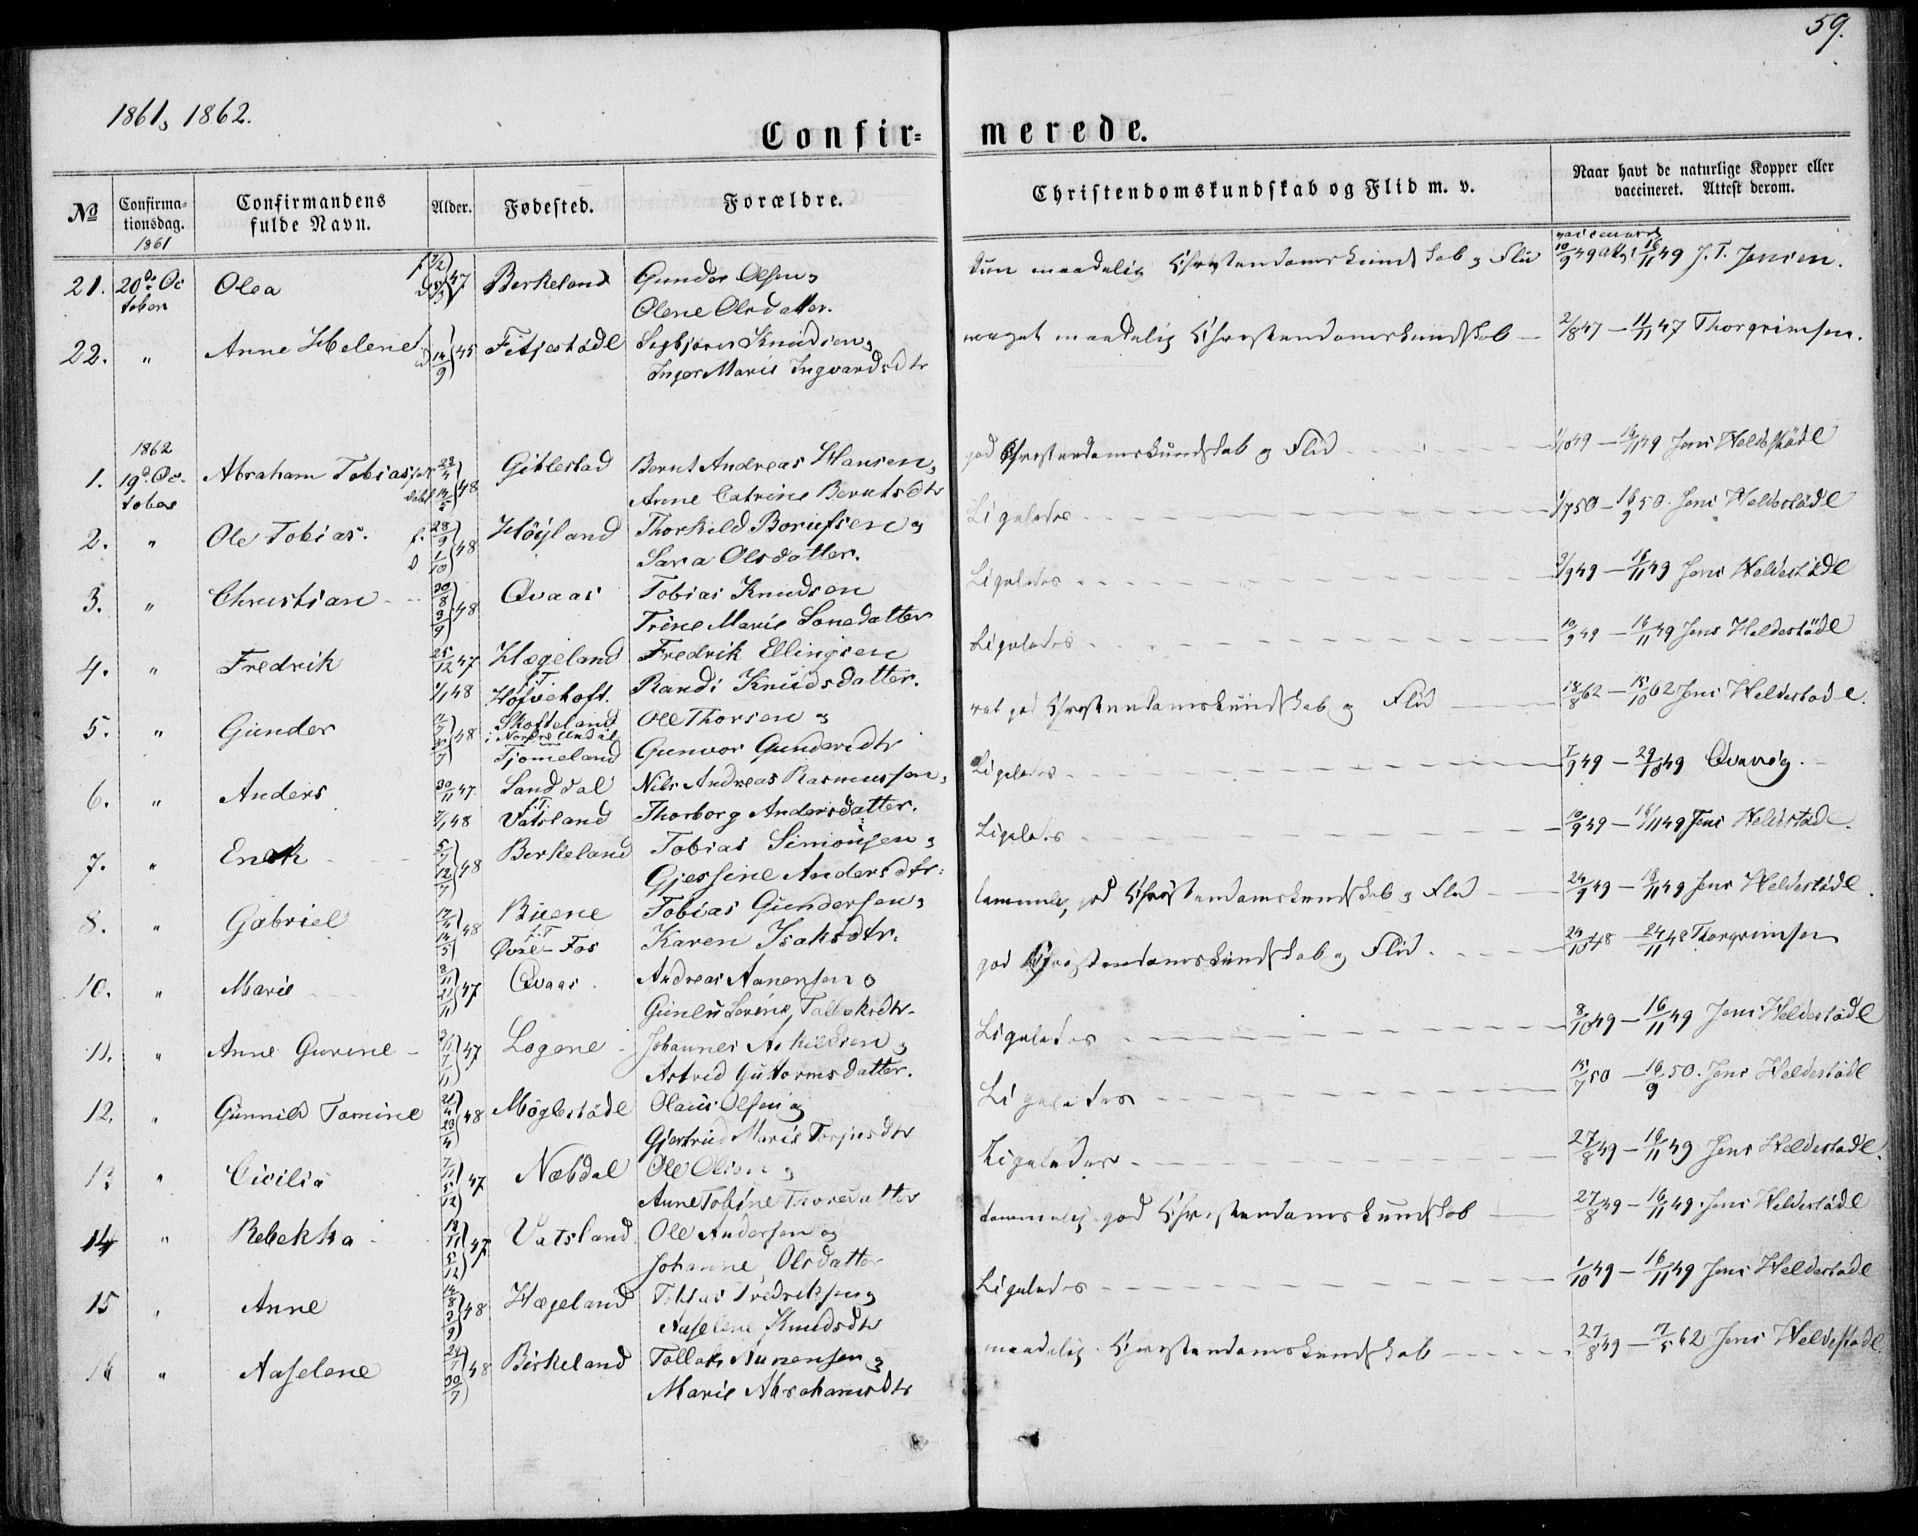 59.
1861, 1862.
Confir= merede.
No
Confirma-
tionsdag.
1861
Confirmandens
fulde Navn.
Alder.
Fødested.
Forældre.
Christendomskundskab og Flid m. v.
Naar havt de naturlige Kopper eller
vaccineret. Attest derom.
21. 20de Oc Olea 47 Birkeland Gunder Olsen og
tober Olene Olsdatter.
10/9 49 att. 16/11 49 J. T. Jensen.
22. " Anne Helene 14/9 45 Fitjestødl Knudsen og
Inger Marie Ingvardsdtr
noget maadelig Christendomskundskab — 2/8 47 — 11/11 47 Thorgrimsen.
1862
1. 19de Oc- Abraham Tobias 48 Gitlestad Bernt Andreas Hansen,
tober Anne Catrine Berntsdtr
god Christendomskundskab og Flid — 16/11 49 Jens Heldestødl
2. " Ole Tobias. f. 28/9 48 Høyland Thorkild Borufsen og
d 1/10 Sara Olsdatter.
Ligeledes 1/7 50 — 16/9 50. Jens Heldestødl
3. " Christian 30/8 48 Qvaas Tobias Knudsen
3/9 Trine Marie Sonedatter
Ligeledes 3/9 49 — 16/11 49 Jens Heldestødl
4. " Fredrik 25/12 47 Hægeland Fredrik Ellingsen
1/1 48 f.T. Høivehoft. Randi Knudsdatter.
Ligeledes 10/9 49 — 16/11 49 Jens Heldestödl
5. " Gunder 48 Skofteland Ole Thorsen og
i Nordre Undal
Tjomeland Gunvor Gundersdtr
god Christendomskundskab og Flid 18/8 62 — 15/10 62 Jens Heldestadl.
6. " Anders 30/11 47 Sanddal Nils Andreas Rasmussen,
2/1 48 f.T. Vatsland Thorborg Andersdatter.
Ligeledes 7/9 49 — 29/10 49 Qvavig.
7. " Enok 5/7 48 Birkeland Tobias Simonsen og
12/7 Gjessine Andersdtr.
Ligeledes 10/9 49 — 16/11 49 Jens Heldestadl.
8. " Gabriel 48 Buene Tobias Gundersen,
f.T. Øvre-Fos Karen Isaksdtr.
temmelig god Christendomskundskab og Flid 24/9 49 — 16/11 49 Jens Heldestødl.
10. " Marie 8/11 47 Qvaas. Andreas Aanensen og
21/11 Gunlu Serine Tallaksdtr.
god Christendomskundskab og Flid. 26/10 48 — 24/11 48 Thorgrimsen
11. " Anne Gurine 47 Logene Johannes Askildsen og
Astrid Guttormsdatter.
Ligeledes 8/10 49 — 16/11 49 Jens Heldestødl
12. " Gunnild Tomine 48 Møglestødl Olaus Olsen og
23/4 Gjertrud Marie Torjusdtr
Ligeledes 15/7 50 — 16/9 50. Jens Heldestødl
13 " Cicilia 7/11 47 Næbdal Ole Olsen og
5/12 Anne Tobine Thoredatter
Ligeledes 27/8 49 — 16/11 49 Jens Heldestadl.
14 " Rebekka 47 Vatsland Ole Andersen og
5/12 Johanne Olsdatter
temmelig god Christendomskundskab — 27/8 49 — 16/11 49. Jens Heldestødl
15 " Anne 48 Hægeland Tobias Fredriksen og
3/9 Aaselene Knudsdtr
Ligeledes 1/10 49 — 16/11 49 Jens Heldestødl
16 " Aaselene 48 Birkeland Tallak Aanensen og
30/7 Marie Abrahamsdtr
maadelig Christendomskundskab 27/8 49 — 17/5 62 Jens Heldestadl.